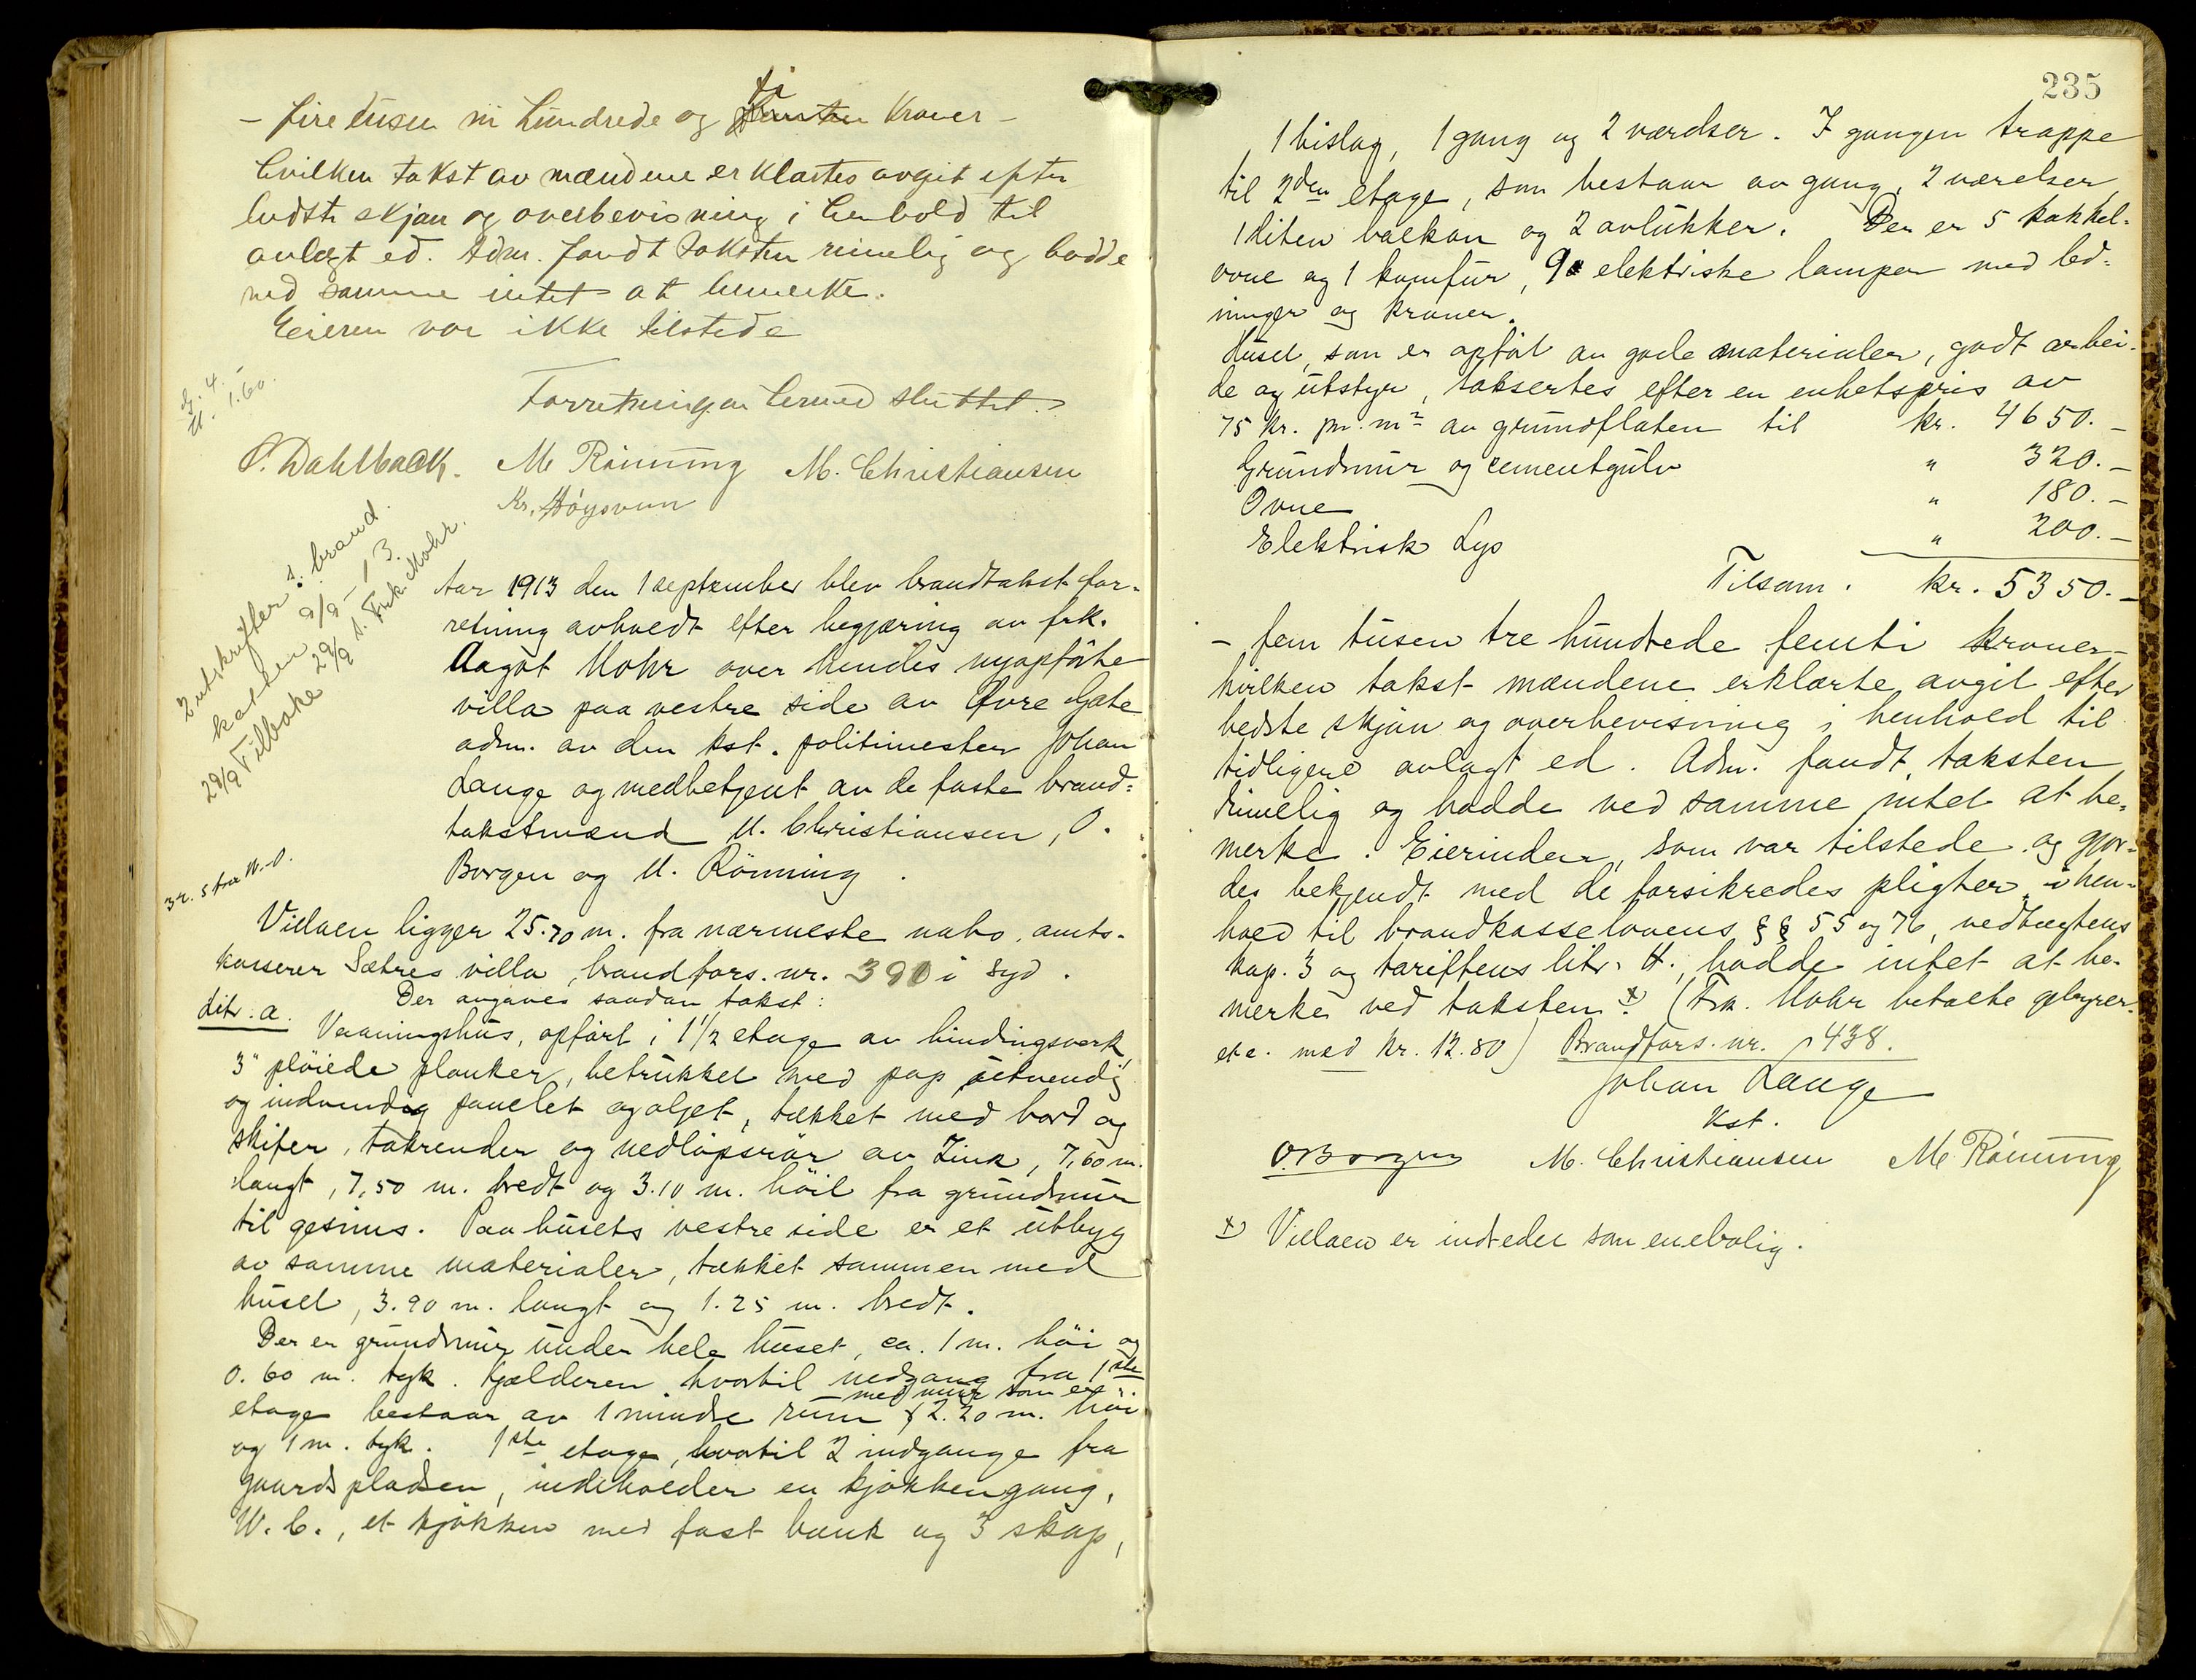 - fire tusen ni hundrede og ti kroner -
hvilken takst av mændene erklærtes avgit efter
bedste skjøn og overbevisning i henhold til
avlagt ed. Adm. fandt taksten rimelig og hadde
ved samme intet at bemerke.
Eieren var ikke tilstede
G. 4.-
U. 1.60.
Forretningen hermed sluttet.
P. Dahlback. M Rönning M. Christiansen
Kr. Høysveen
2 utskrifter s. brand
kassen 9/9 - 13.
29/9 Tilbake 29/9 t. Frk. Mohr.
Aar 1913 den 1 september blev brandtakst for-
retning avholdt efter begjæring av frk.
Aagot Mohr over hendes nyopförte
villa paa vestre side av Øvre Gate
adm. av den kst. politimester Johan
Lange og medbetjent av de faste brand-
takstmænd M. Christiansen, O.
Borgen og M. Rönning.
Villaen ligger 25.70 m. fra nærmeste nabo, amts-
kasserer Sætres villa, brandfors. nr. 390 i Syd.
Der avgaves saadan takst:
Litr. a. Vaaningshus, opfört i 1 1/2 etage av bindingsverk,
3" plöiede planker, betrukket med pap utvendig
og indvendig panelet og oljet, tækket med bord og
skifer, takrender og nedlöpsrör av Zink, 7,60 m.
langt, 7,50 m. bredt og 3.10 m. höit fra grundmur
til gesims. Paa husets vestre side er et utbyg
av samme materialer, tækket sammen med
huset, 3.90 m. langt og 1.25 m. bredt.
Der er grundmur under hele huset, ca. 1 m. höi og
0.60 m. tyk. Kjælderen hvortil nedgang fra 1ste
etage bestaar av 1 mindre rum med mur som er 2.20 m. höi
og 1 m. tyk. 1ste etage, hvortil 2 indgange fra
gaardspladsen, indeholder en kjøkkengang,
W.C., et kjökken med fast bænk og 3 skap,
235
1 bislag, 1 gang og 2 værelser. I gangen trappe
til 2den etage, som bestaar av gang, 2 værelser,
1 liten balkon og 2 avlukker. Der er 5 kakkel-
ovne og 1 komfur, 9 elektriske lamper med led-
ninger og kroner.
Huset, som er opfört av gode materialer, godt arbei-
de og utstyr, taksertes efter en enhetspris av
75 kr. pr. m² av grundflaten til kr. 4650.-
Grundmur og cementgulv " 320.-
Ovne " 180.-
Elektrisk Lys " 200.-
Tilsam. kr. 5350.-
- fem tusen tre hundrede femti kroner -
hvilken takst mændene erklærte avgit efter
bedste skjön og overbevisning i henhold til
tidligere avlagt ed. Adm. fandt taksten
rimelig og hadde ved samme intet at be-
merke. Eierinden, som var tilstede og gjor-
des bekjendt med de forsikredes pligter i hen-
hold til brandkasselovens §§ 55 og 76, vedtægtens
kap. 3 og tariffens litr. H., hadde intet at be-
merke ved taksten x) (Frk. Mohr betalte gebyrer
etc. med kr. 12.80) Brandfors. nr. 438.
Johan Lange
Kst.
O. Borgen M. Christiansen M Rönning
x) Villaen er indredet som enebolig.